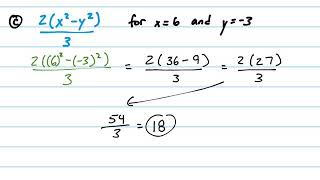 ⓒ 2(x²-y²)/3 for x=6 and y=-3
2((6)²-(-3)²)/3 = 2(36-9)/3 = 2(27)/3
54/3 = 18